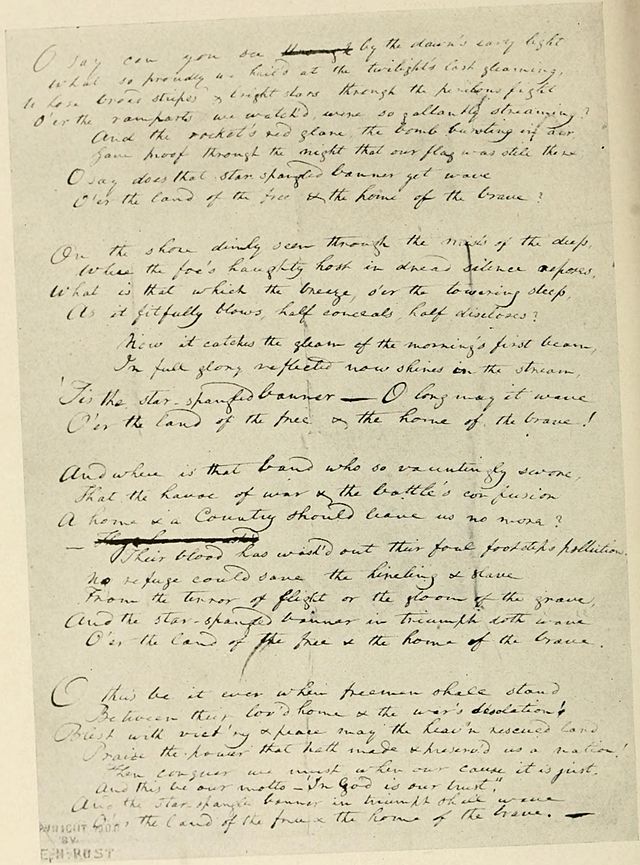 O say can you see through by the dawn's early light
What so proudly we hail'd at the twilight's last gleaming,
Whose broad stripes & bright stars through the perilous fight
O'er the ramparts we watch'd, were so gallantly streaming?
And the rocket's red glare, the bomb bursting in air,
Gave proof through the night that our flag was still there
O say does that star-spangled banner yet wave
O'er the land of the free & the home of the brave?
On the shore dimly seen through the mists of the deep,
Where the foe's haughty host in dread silence reposes,
What is that which the breeze, o'er the towering steep,
As it fitfully blows, half conceals, half discloses?
Now it catches the gleam of the morning's first beam,
In full glory reflected now shines in the stream,
'Tis the star-spangled banner — O long may it wave
O'er the land of the free & the home of the brave!
And where is that band who so vauntingly swore,
That the havoc of war & the battle's confusion
A home & a Country should leave us no more?
—
Their blood has wash'd out their foul footsteps pollution.
No refuge could save the hireling & slave
From the terror of flight or the gloom of the grave,
And the star-spangled banner in triumph doth wave
O'er the land of the free & the home of the brave.
O thus be it ever when freemen shall stand
Between their lov'd home & the war's desolation!
Blest with vict'ry & peace may the heav'n rescued land
Praise the power that hath made & preserv'd us a nation!
Then conquer we must, when our cause it is just,
And this be our motto — "In God is our trust,"
And the star-spangled banner in triumph shall wave
O'er the land of the free & the home of the brave. —
BY
E.H. RUST